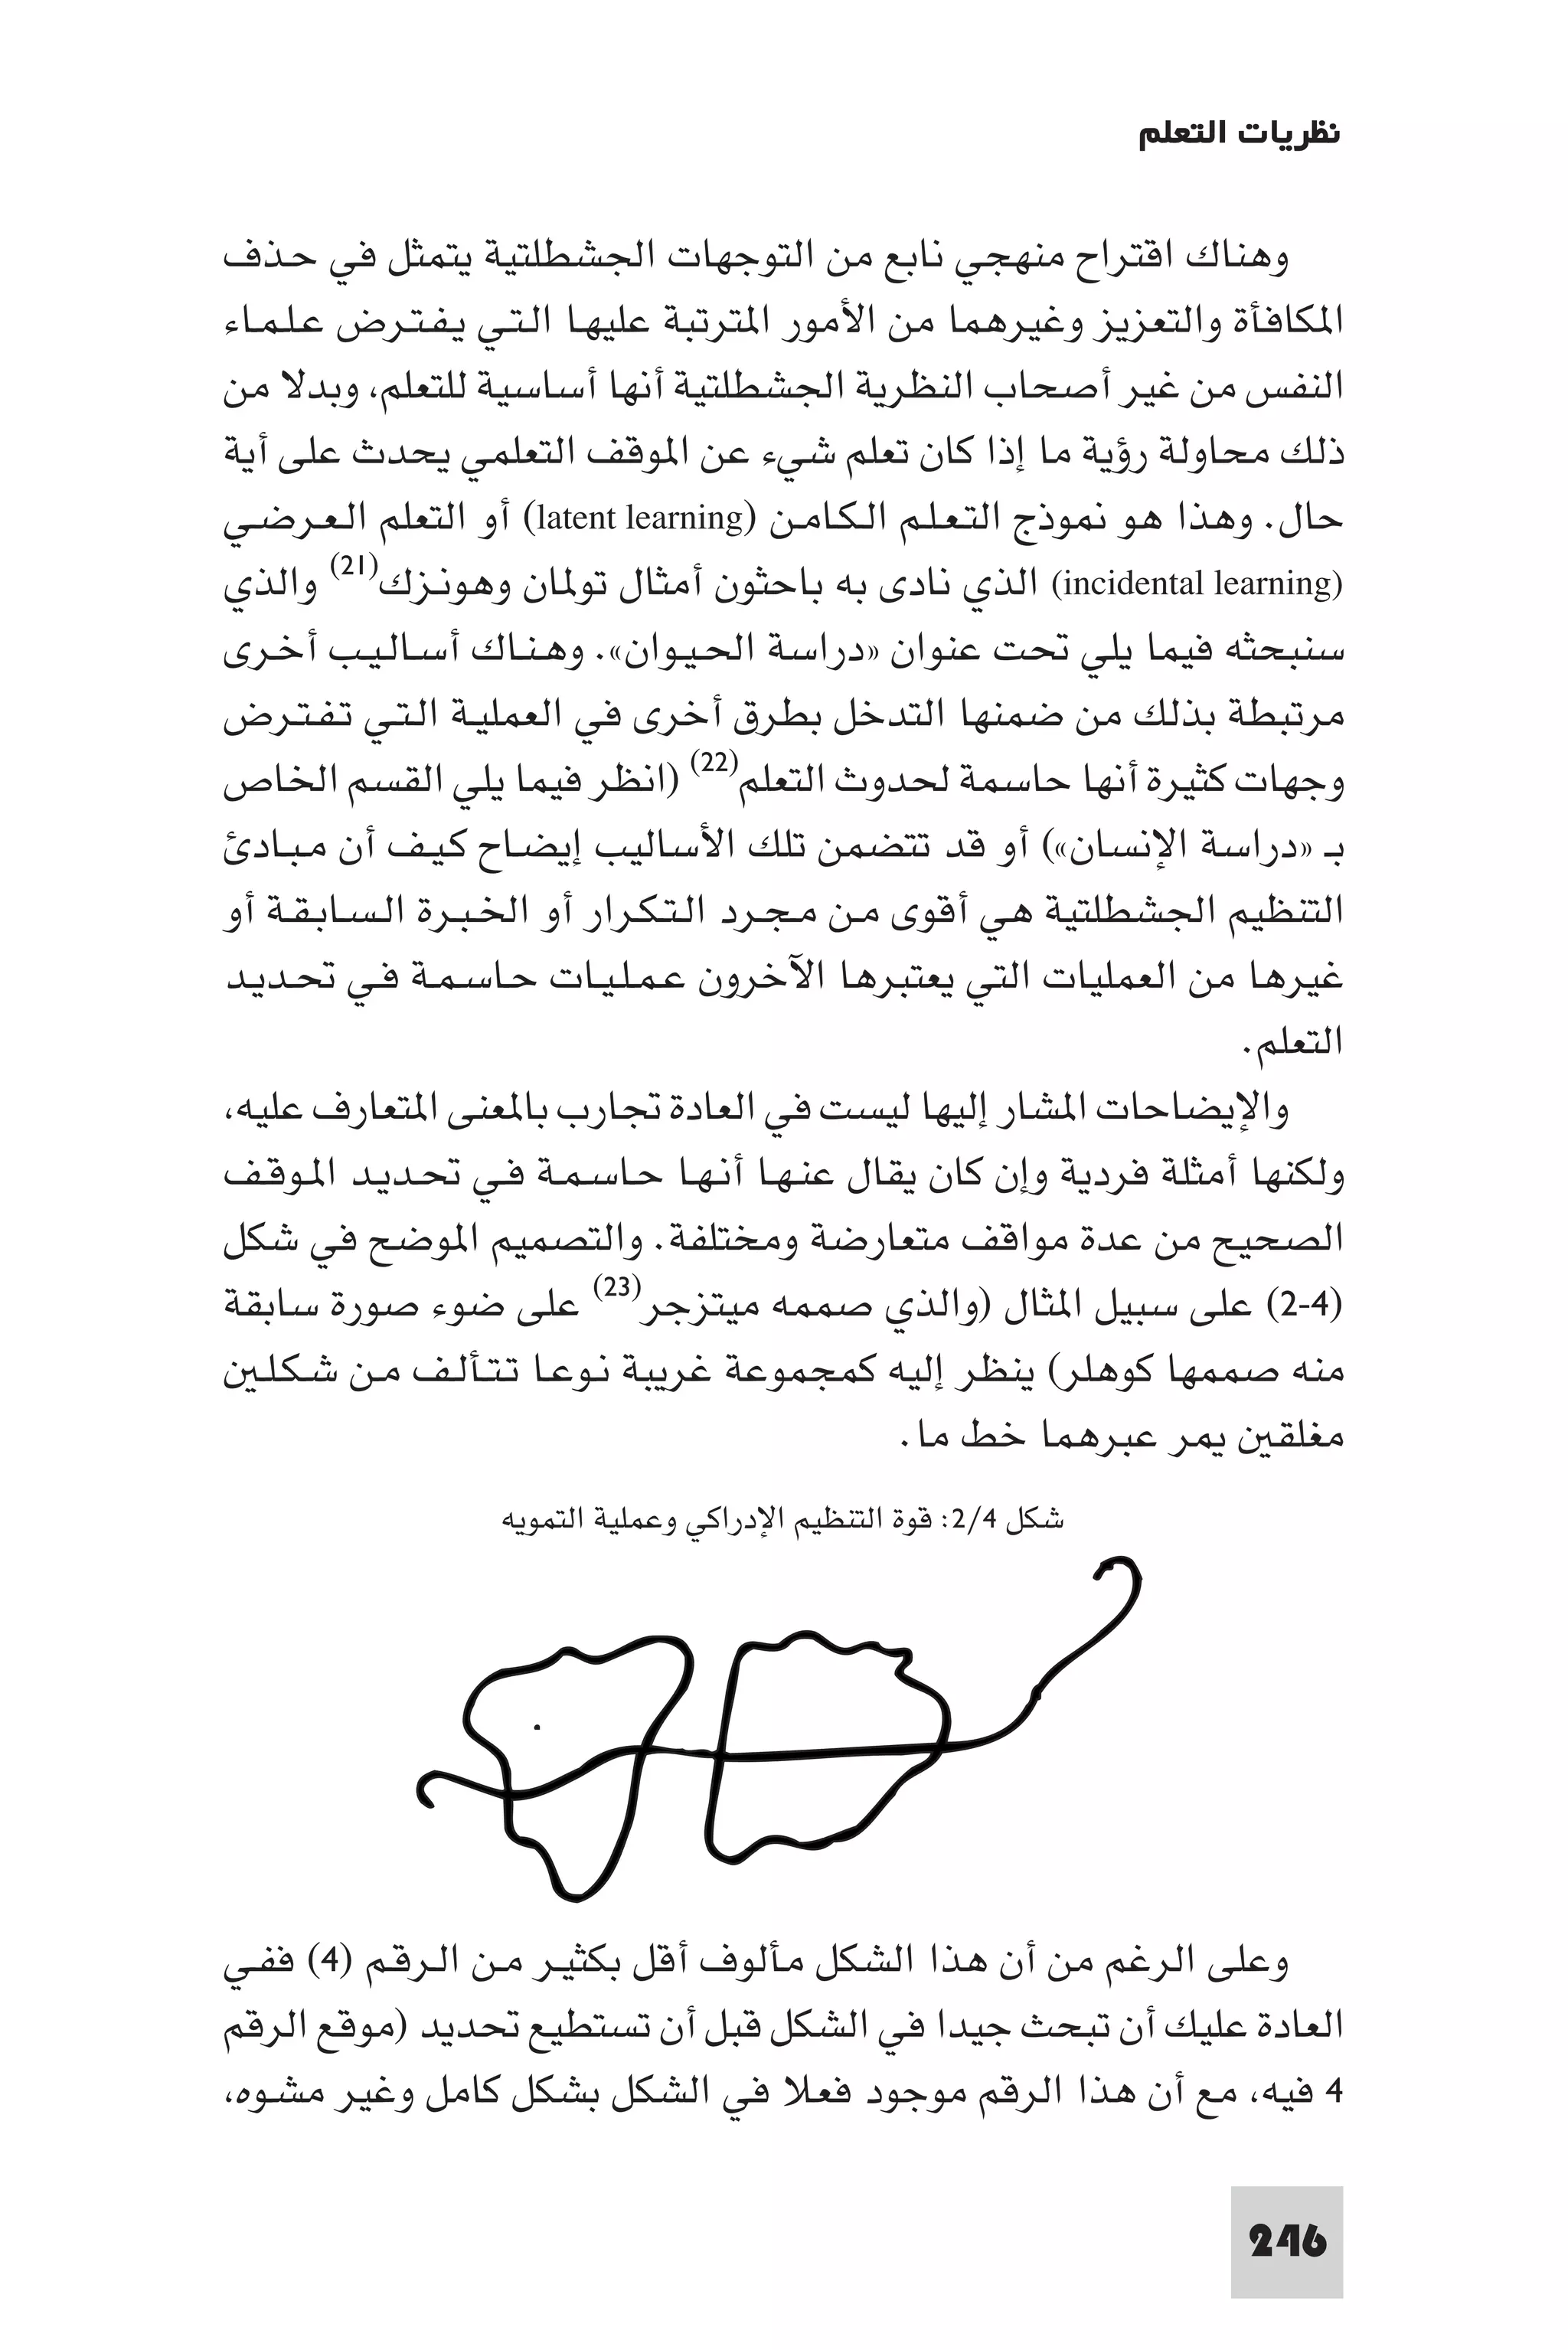 نظريات التعلم
وهناك اقتراح منهجي نابع من التوجهات الجشطلتية يتمثل في حذف
المكافأة والتعزيز وغيرهما من الأمور المترتبة عليها التي يفترض علماء
النفس من غير أصحاب النظرية الجشطلتية أنها أساسية للتعلم، وبدلا من
ذلك محاولة رؤية ما إذا كان تعلم شيء عن الموقف التعلمي يحدث على أية
حال. وهذا هو نموذج التعلم الكامن (latent learning) أو التعلم العرضي
(incidental learning) الذي نادى به باحثون أمثال تولمان وهونزك(21) والذي
سنبحثه فيما يلي تحت عنوان «دراسة الحيوان». وهناك أساليب أخرى
مرتبطة بذلك من ضمنها التدخل بطرق أخرى في العملية التي تفترض
وجهات كثيرة أنها حاسمة لحدوث التعلم(22) (انظر فيما يلي القسم الخاص
بـ «دراسة الإنسان») أو قد تتضمن تلك الأساليب إيضاح كيف أن مبادئ
التنظيم الجشطلتية هي أقوى من مجرد التكرار أو الخبرة السابقة أو
غيرها من العمليات التي يعتبرها الآخرون عمليات حاسمة في تحديد
التعلم.
والإيضاحات المشار إليها ليست في العادة تجارب بالمعنى المتعارف عليه،
ولكنها أمثلة فردية وإن كان يقال عنها أنها حاسمة في تحديد الموقف
الصحيح من عدة مواقف متعارضة ومختلفة. والتصميم الموضح في شكل
(2-4) على سبيل المثال (والذي صممه ميتزجر(23) على ضوء صورة سابقة
منه صممها كوهلر) ينظر إليه كمجموعة غريبة نوعا تتألف من شكلين
مغلقين يمر عبرهما خط ما.
شكل 2/4: قوة التنظيم الإدراكي وعملية التمويه
وعلى الرغم من أن هذا الشكل مألوف أقل بكثير من الرقم (4) ففي
العادة عليك أن تبحث جيدا في الشكل قبل أن تستطيع تحديد (موقع الرقم
4 فيه، مع أن هذا الرقم موجود فعلا في الشكل بشكل كامل وغير مشوه،
246